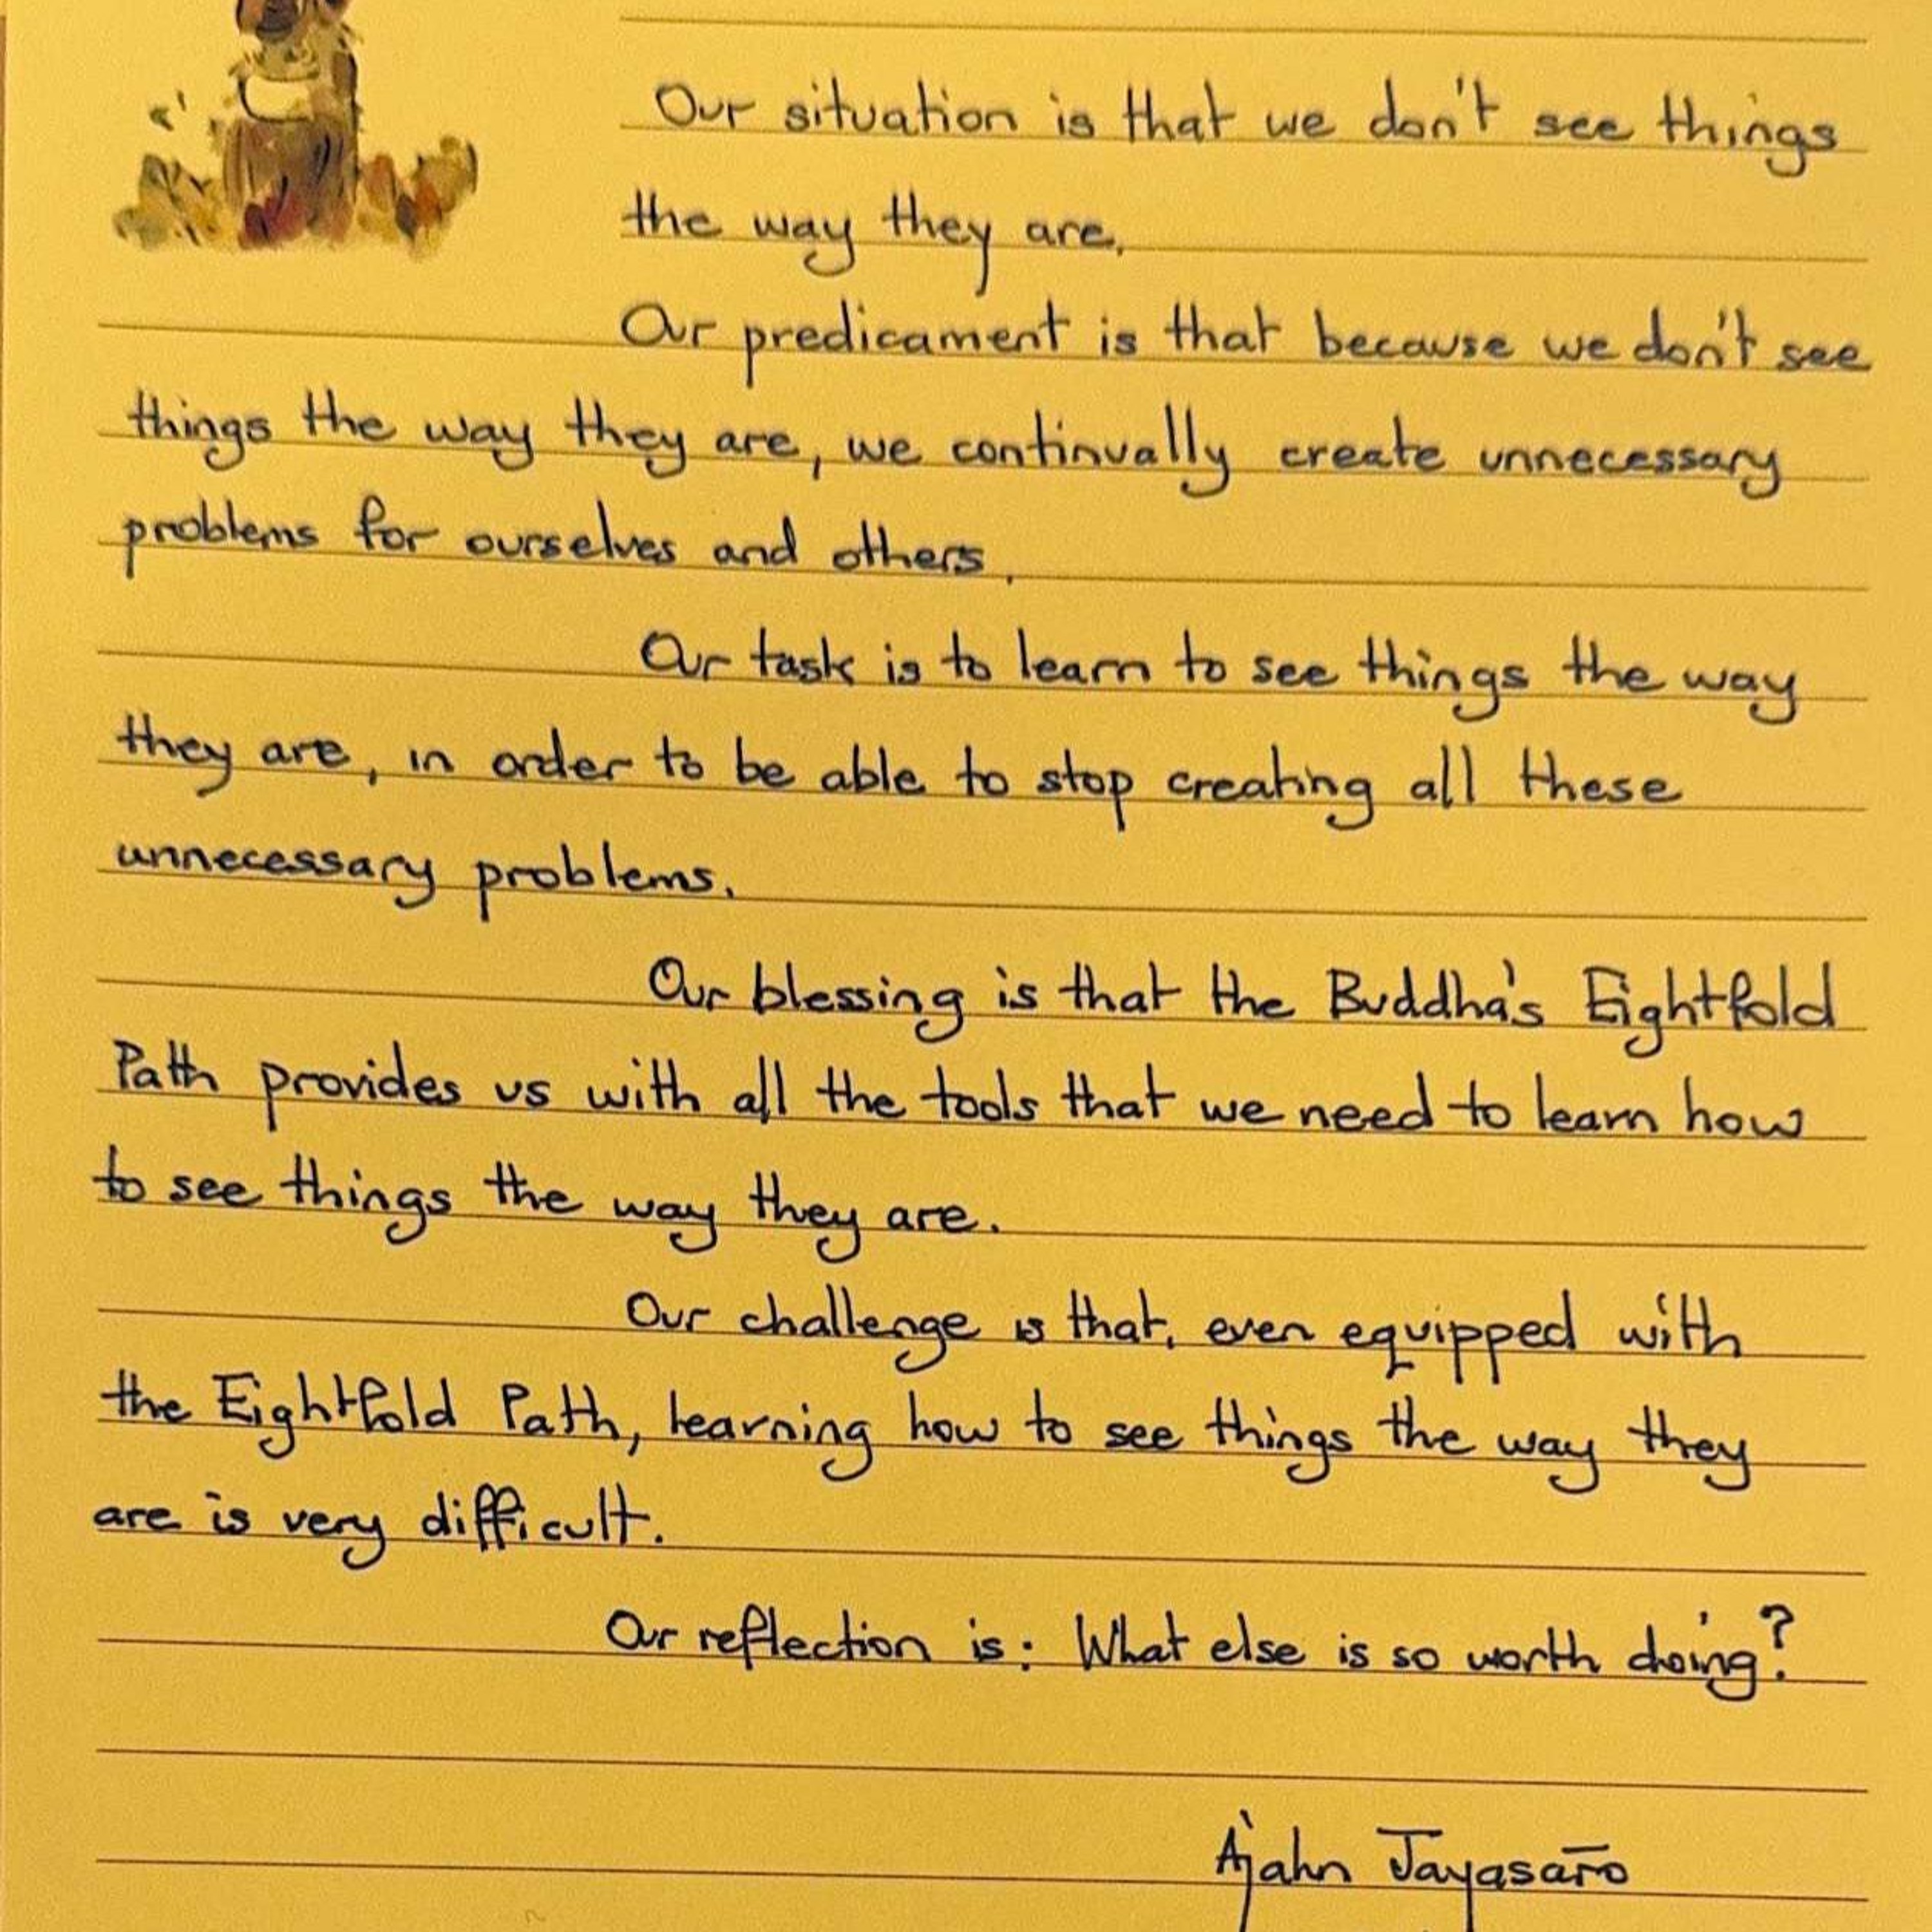 Our situation is that we don't see things
the way they are.
Our predicament is that because we don't see
things the way they are, we continually create unnecessary
problems for ourselves and others.
Our task is to learn to see things the way
they are, in order to be able to stop creating all these
unnecessary problems.
Our blessing is that the Buddha's Eightfold
Path provides us with all the tools that we need to learn how
to see things the way they are.
Our challenge is that, even equipped with
the Eightfold Path, learning how to see things the way they
are is very difficult.
Our reflection is: What else is so worth doing?
Ajahn Jayasāro